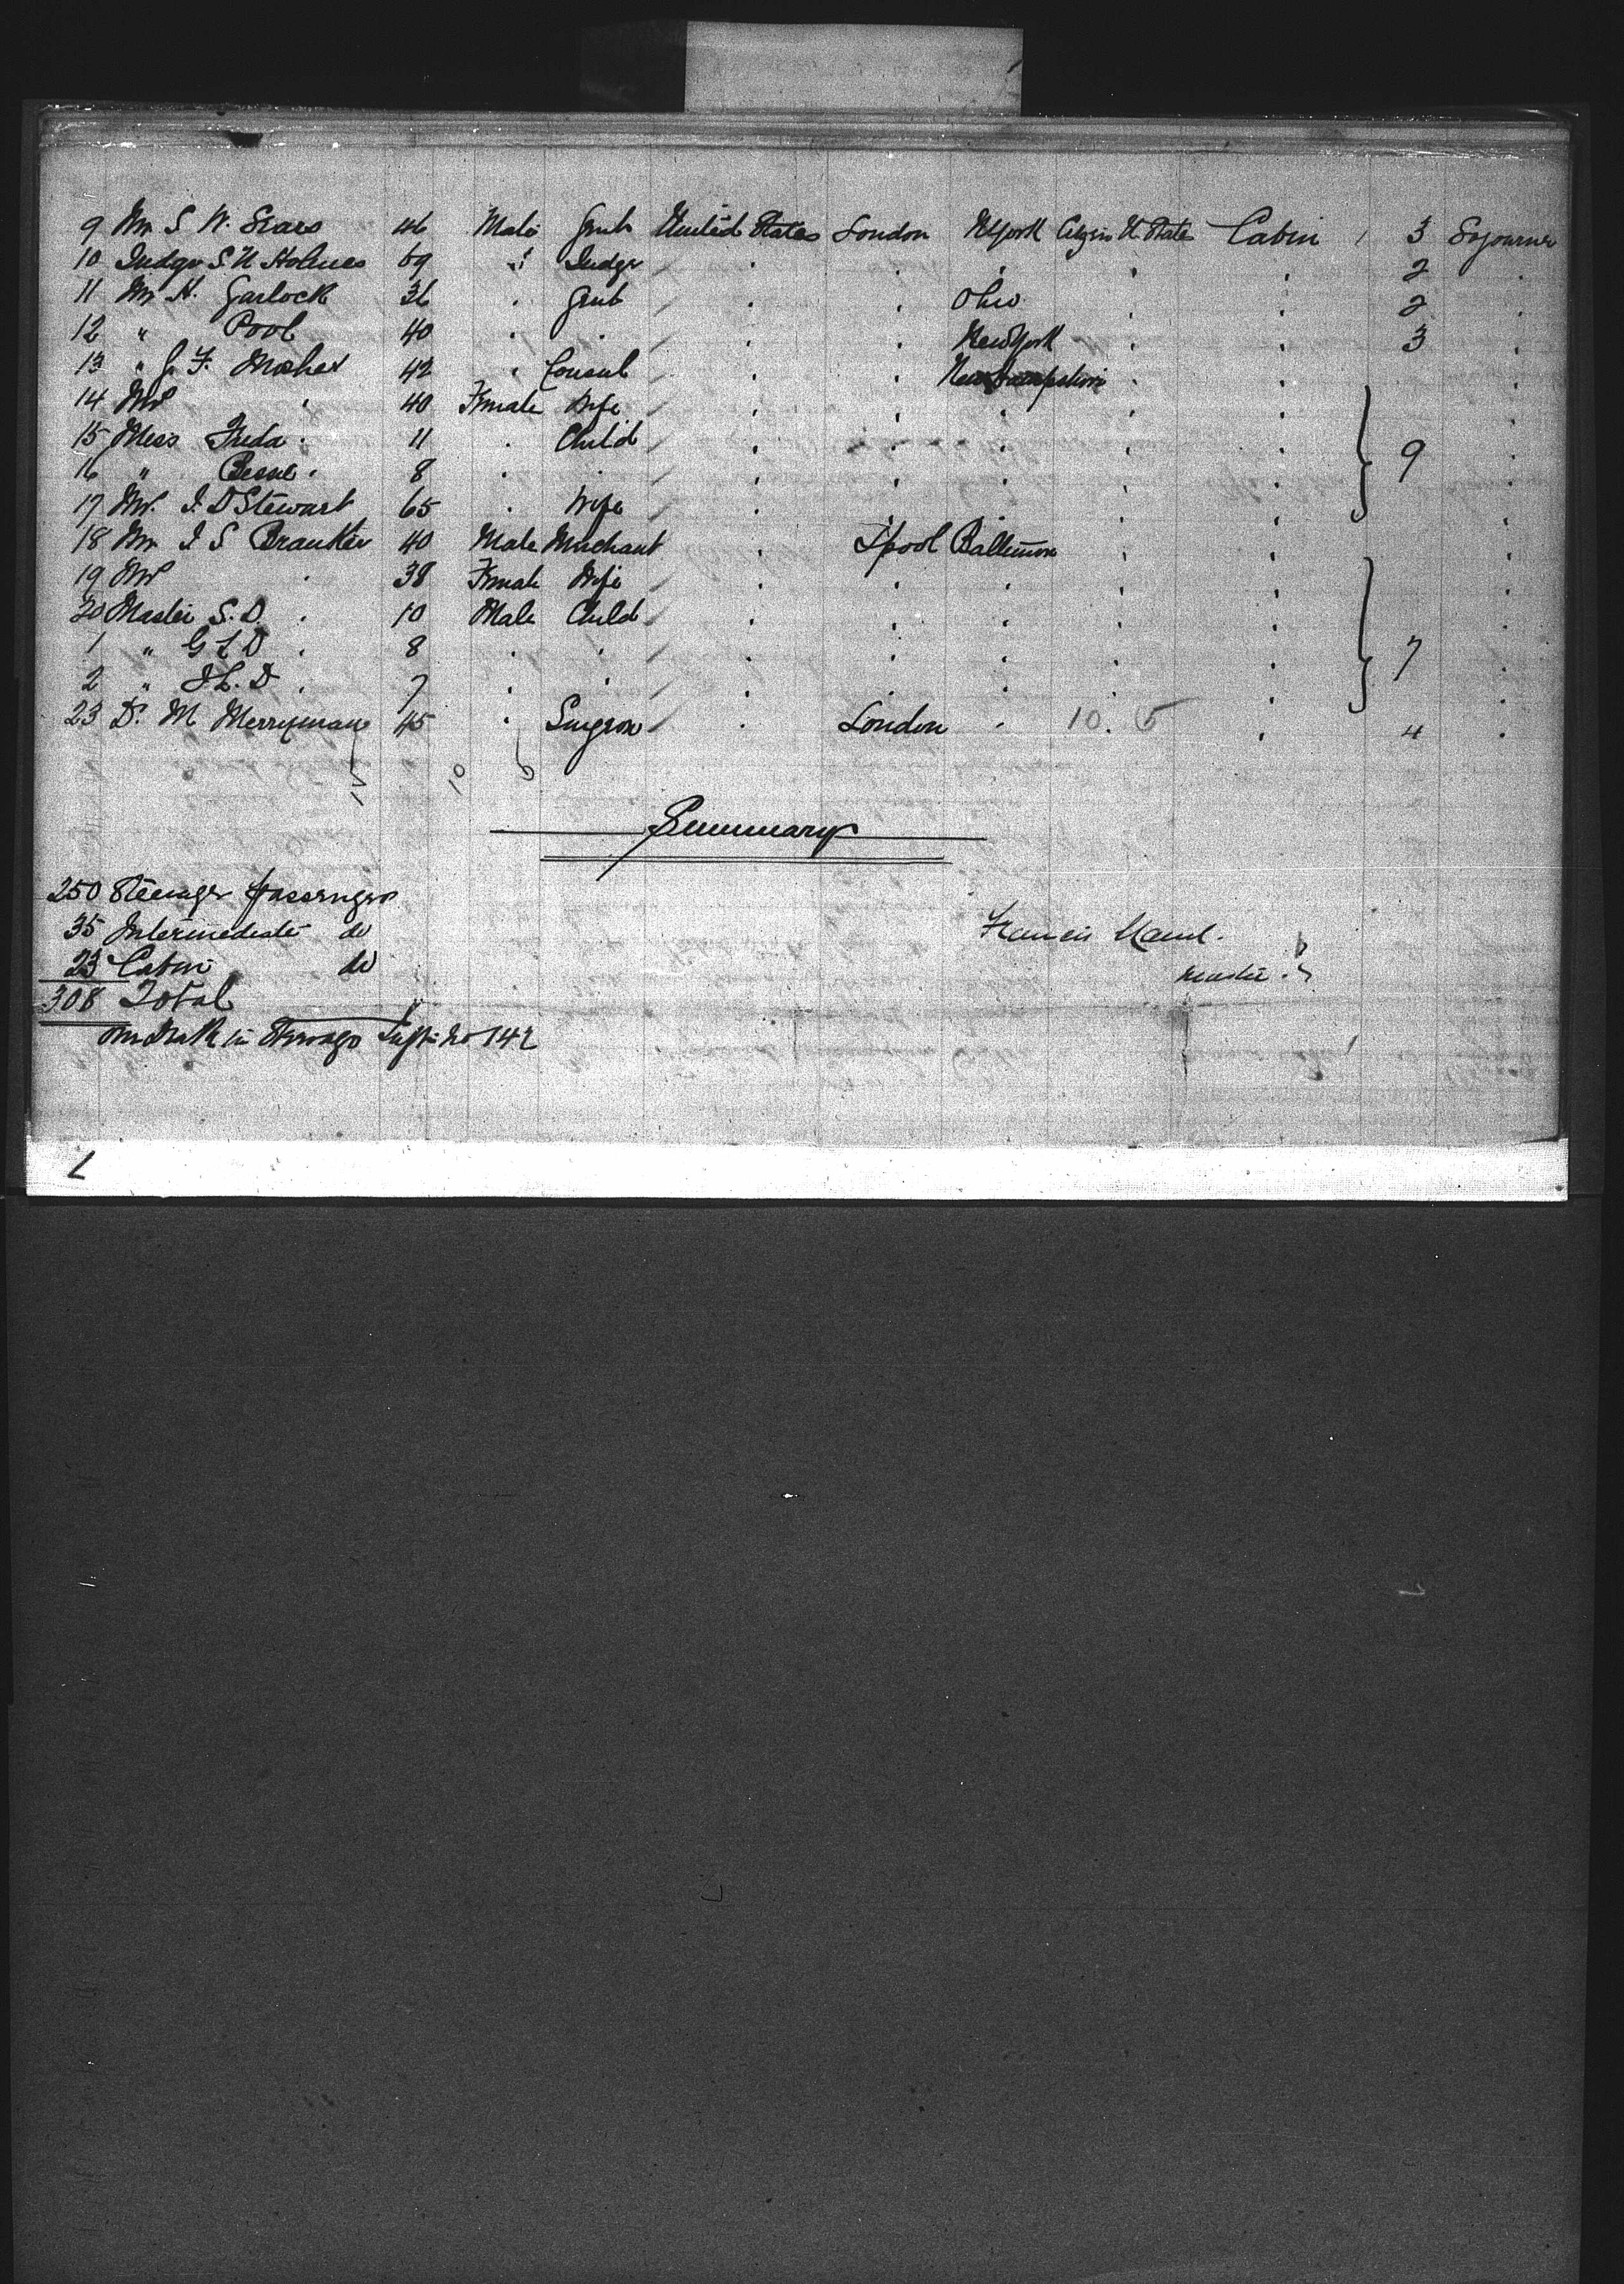 9 Mr S W. Sears 46 Male Gent United States London N York Citizen U. States Cabin 3 Sojourner
10 Judge S. N Holmes 69 " Judge . . . . . 2 .
11 Mr H. Garlock 36 . Gent . . Ohio . . 2 .
12 " Pool 40 . . . . New York . . 3 .
13 " J. F. Mosher 42 . Consul . . New Hampshire . . .
14 Mrs . 40 Female Wife . . . . . .
15 Miss Freda . 11 . Child . . . . . 9 .
16 " Bessie . 8 . . . . . . . .
17 Mrs. I. D Stewart 65 . Wife . . . . . .
18 Mr I S Branker 40 Male Merchant . L'pool Baltimore . . .
19 Mrs . 38 Female Wife . . . . . .
20 Master S. D. . 10 Male Child . . . . . .
1 " G L D . 8 . . . . . . . 7 .
2 " . 7 . . . . . . . .
23 Dr. M Merryman 45 . Surgeon London . 10. 5 . 4 .
13 10 6
Summary
250 Steerage passengers
35 Intermediate do
23 Cabin do
308 Total
Francis
master.
in Steerage No 142
L